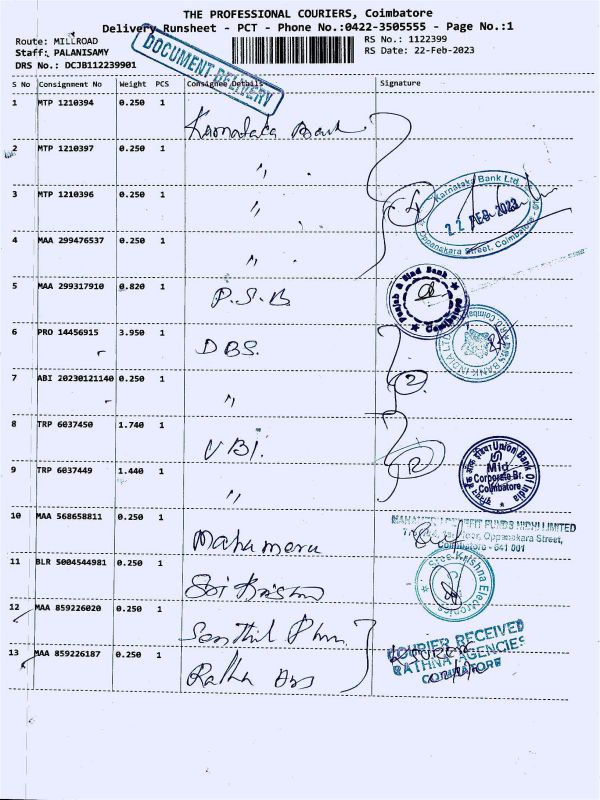 THE PROFESSIONAL COURIERS, Coimbatore
Delivery Runsheet - PCT - Phone No.:0422-3505555 - Page No.:1
Route: MILLROAD
RS No.: 1122399
Staff: PALANISAMY
RS Date: 22-Feb-2023
DRS No.: DCJB112239901
DOCUMENT DELIVERY
S No Consignment No Weight PCS Consignee Details Signature
1 MTP 1210394 0.250 1 Karnataka Bank
2 MTP 1210397 0.250 1 "
3 MTP 1210396 0.250 1 "
4
Karnataka Bank Ltd.
22 FEB 2023
Oppanakara Street, Coimbatore
4 MAA 299476537 0.250 1 "
5 MAA 299317910 0.820 1 P.S.B
Punjab & Sind Bank
Coimbatore
6 PRO 14456915 3.950 1 DBS.
DBS BANK INDIA LTD
7 ABI 20230121140 0.250 1 "
2
8 TRP 6037450 1.740 1 UBI.
2
Union Bank Of India
Mid
Corporate Br.
Coimbatore
9 TRP 6037449 1.440 1 "
10 MAA 568658811 0.250 1 Mahameru
BENEFIT FUNDS NIDHI LIMITED
Floor, Oppanakara Street,
Coimbatore - 641 001
11 BLR 5004544981 0.250 1 Sri Krishna
Sree Krishna Electronics
12 MAA 859226020 0.250 1 Senthil
13 MAA 859226187 0.250 1 Rathna
COURIER RECEIVED
RATHNA AGENCIES
COIMBATORE